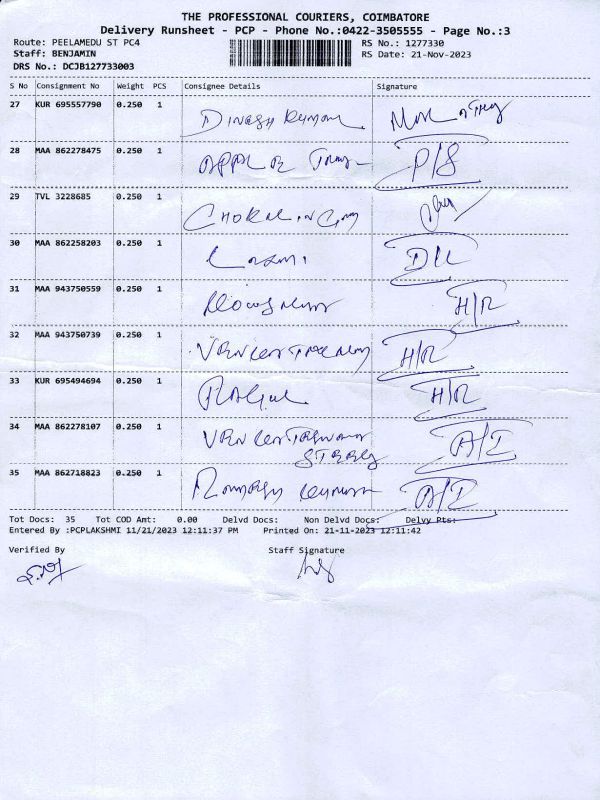 THE PROFESSIONAL COURIERS, COIMBATORE
Delivery Runsheet - PCP - Phone No.:0422-3505555 - Page No.:3
Route: PEELAMEDU ST PC4 RS No.: 1277330
Staff: BENJAMIN RS Date: 21-Nov-2023
DRS No.: DCJB127733003
S No Consignment No Weight PCS Consignee Details Signature
27 KUR 695557790 0.250 1 Dinesh Kumar
28 MAA 862278475 0.250 1 P/S
29 TVL 3228685 0.250 1
30 MAA 862258203 0.250 1 Laxmi D/L
31 MAA 943750559 0.250 1 H/R
32 MAA 943750739 0.250 1 H/R
33 KUR 695494694 0.250 1 H/R
34 MAA 862278107 0.250 1 A/I
35 MAA 862718823 0.250 1 A/I
Tot Docs: 35 Tot COD Amt: 0.00 Delvd Docs: Non Delvd Docs: Delvy Pts:
Entered By :PCPLAKSHMI 11/21/2023 12:11:37 PM Printed On: 21-11-2023 12:11:42
Verified By Staff Signature